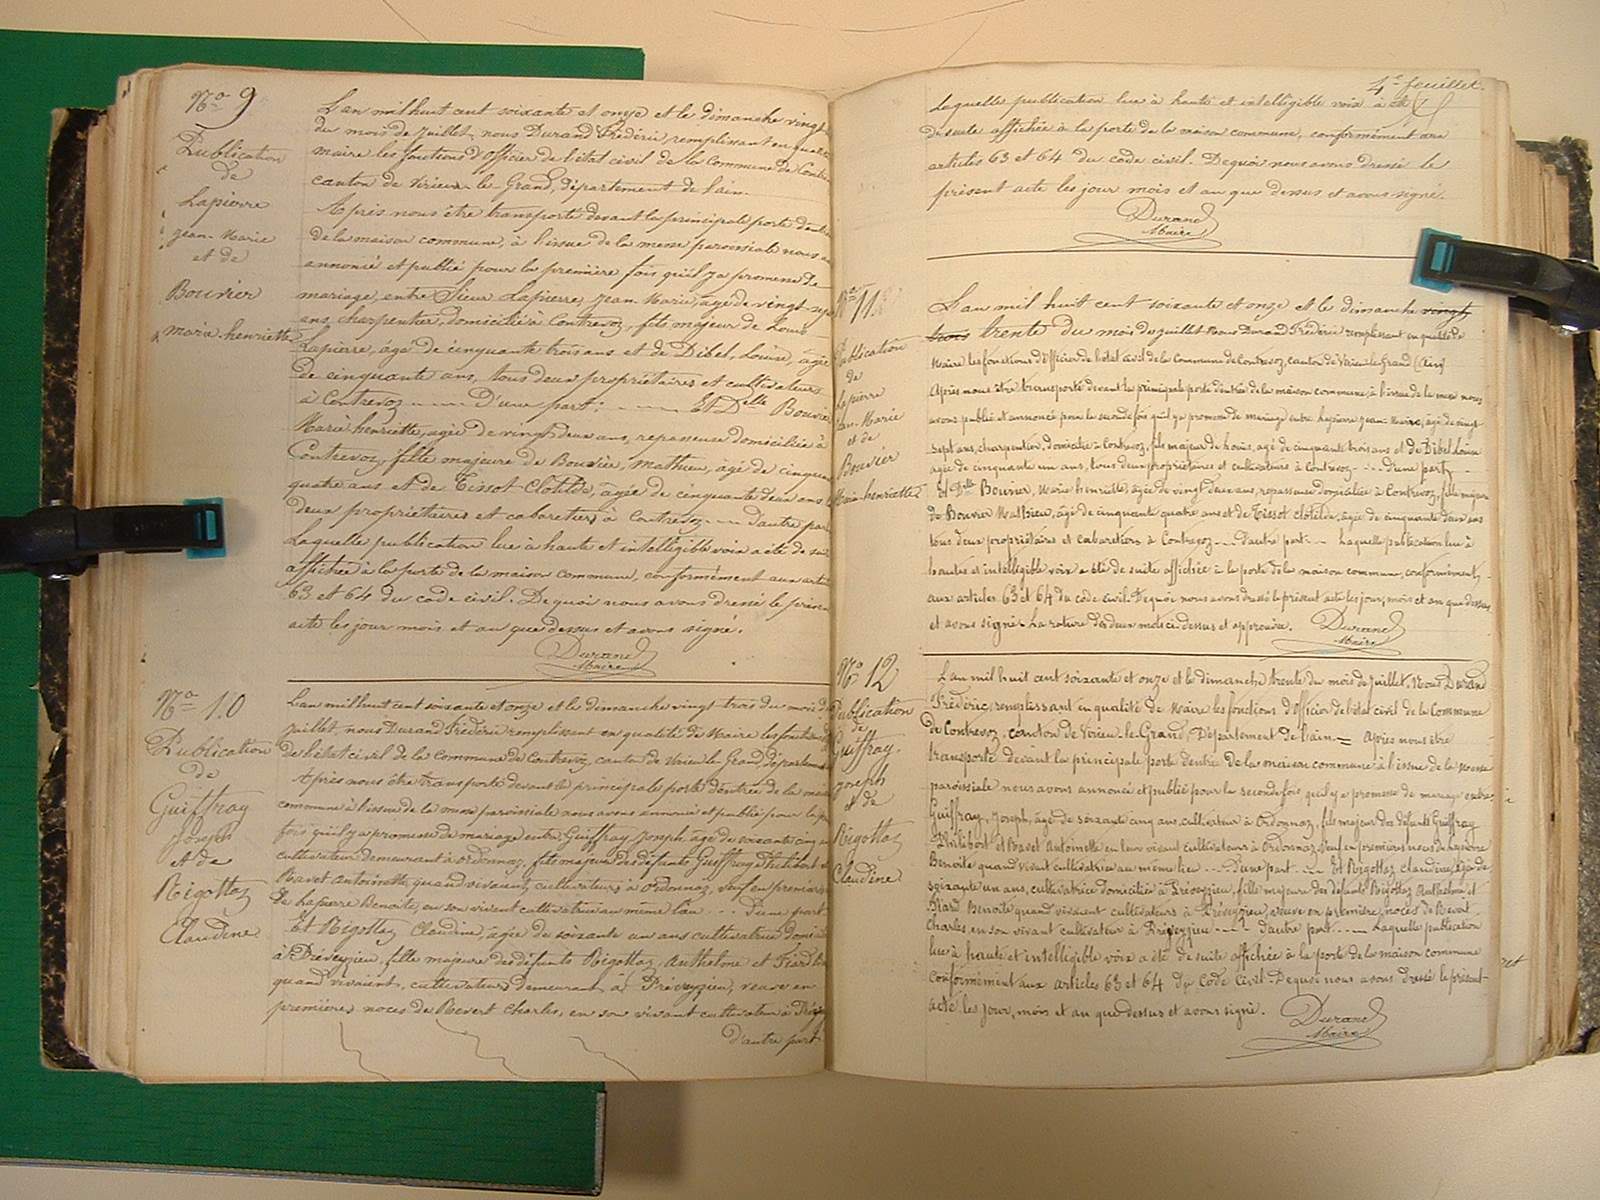 No 9
Publication
de
Lapierre
Jean-Marie
et de
Bouvier
marie-henriette
L'an mil huit cent soixante et onze et le dimanche vingt
du mois de Juillet, nous Durand Frédéric, remplissant en qualité
maire les fonctions d'officier de l'état civil de la Commune de Contre
canton de Virieu-le-Grand, département de l'ain.
Après nous être transporté devant la principale porte d'entrée
de la maison commune, à l'issue de la messe paroissiale nous
annoncé et publié pour la première fois qu'il y a promesse de
mariage, entre Sieur Lapierre, Jean-Marie, âgé de vingt-sept
ans, charpentier, domicilié à Contrevoz, fils majeur de Louis
Lapierre, âgé de cinquante trois ans et de Dibel, Louise, âgée
de cinquante ans, tous deux propriétaires et cultivateurs
à Contrevoz D'une part; Et Delle Bouvier
Marie henriette, âgée de vingt deux ans, repasseuse domiciliée à
Contrevoz, fille majeure de Bouvier, Mathieu, âgé de cinquante
quatre ans et de Tissot Clotilde, âgée de cinquante deux ans
deux propriétaires et cabaretiers à Contrevoz d'autre part
Laquelle publication lue à haute et intelligible voix a été de suite
affichée à la porte de la maison commune, conformément aux articles
63 et 64 du code civil. De quoi nous avons dressé le présent
acte les jour mois et an que dessus et avons signé.
Durand
Maire
No 10
Publication
de
Guiffray
Joseph
et de
Rigottaz
Claudine
L'an mil huit cent soixante et onze et le dimanche vingt trois du mois de
Juillet, nous Durand Frédéric remplissant en qualité de Maire les fonctions
de l'état civil de la Commune de Contrevoz, canton de Virieu le Grand, département
Après nous être transporté devant la principale porte d'entrée de la maison
commune à l'issue de la messe paroissiale nous avons annoncé et publié pour la
fois qu'il y a promesse de mariage entre Guiffray Joseph âgé de soixante cinq
cultivateur demeurant à Ordonnaz, fils majeur des défunts Guiffray Philibert et
Ravet Antoinette quand vivaient, cultivateurs à Ordonnaz, veuf en premières
de Lapierre Benoite, en son vivant cultivatrice au même lieu D'une part
Et Rigottaz Claudine, âgée de soixante un ans cultivatrice
à Préveyzieu, fille majeure des défunts Rigottaz, Anthelme et Fiard
quand vivaient, cultivateurs demeurant à Préveyzieu, veuve en
premières noces de Revert Charles, en son vivant cultivateur à
d'autre part
4e feuillet.
Laquelle publication lue à haute et intelligible voix a été
de suite affichée à la porte de la maison commune, conformément aux
articles 63 et 64 du code civil. De quoi nous avons dressé le
présent acte les jour mois et an que dessus et avons signé.
Durand
Maire
No 11
Publication
de
Lapierre
Jean-Marie
et de
Bouvier
Marie-henriette
L'an mil huit cent soixante et onze et le dimanche vingt
trois trente du mois de Juillet Nous Durand Frédéric remplissant en qualité de
Maire les fonctions d'Officier de l'état civil de la Commune de Contrevoz, canton de Virieu-le-Grand (Ain)
Après nous être transporté devant la principale porte d'entrée de la maison commune, à l'issue de la messe nous
avons publié et annoncé pour la seconde fois qu'il y a promesse de mariage entre Lapierre Jean-Marie, âgé de vingt
sept ans, charpentier, domicilié à Contrevoz, fils majeur de Louis, âgé de cinquante trois ans et de Dibel Louise
âgée de cinquante un ans, tous deux propriétaires et cultivateurs à Contrevoz d'une part
Et Delle Bouvier, Marie henriette, âgée de vingt deux ans, repasseuse domiciliée à Contrevoz, fille majeure
de Bouvier Mathieu, âgé de cinquante quatre ans et de Tissot Clotilde, âgée de cinquante deux ans
tous deux propriétaires et cabaretiers à Contrevoz d'autre part. Laquelle publication lue à
hautes et intelligible voix a été de suite affichée à la porte de la maison commune, conformément
aux articles 63 et 64 du code civil. De quoi nous avons dressé le présent acte les jour, mois et an que dessus
et avons signé. La rature des deux mots ci-dessus et approuvée.
Durand
Maire
No 12
Publication
de
Guiffray
Joseph
et de
Rigottaz
Claudine
L'an mil huit cent soixante et onze et le dimanche trente du mois de Juillet. Nous Durand
Frédéric, remplissant en qualité de Maire les fonctions d'Officier de l'état civil de la Commune
de Contrevoz, canton de Virieu-le-Grand, Département de l'ain. = Après nous être
transporté devant la principale porte d'entrée de la maison commune à l'issue de la Messe
paroissiale nous avons annoncé et publié pour la seconde fois qu'il y a promesse de mariage entre
Guiffray, Joseph, âgé de soixante cinq ans, cultivateur à Ordonnaz, fils majeur des défunts Guiffray
Philibert et Ravet Antoinette en leur vivant cultivateurs à Ordonnaz veuf en premières noces de Lapierre
Benoite quand vivait cultivateur au même lieu D'une part Et Rigottaz Claudine, âgée de
soixante un ans, cultivatrice domiciliée à Préveyzieu, fille majeure des défunts Rigottaz Anthelme et
Fiard Benoite quand vivaient cultivateurs à Préveyzieu, veuve en premières noces de Revert
Charles, en son vivant cultivateur à Préveyzieu d'autre part Laquelle publication
lue à haute et intelligible voix a été de suite affichée à la porte de la maison commune
conformément aux articles 63 et 64 du Code Civil. De quoi nous avons dressé le présent
acte les jour, mois et an que dessus et avons signé.
Durand
Maire